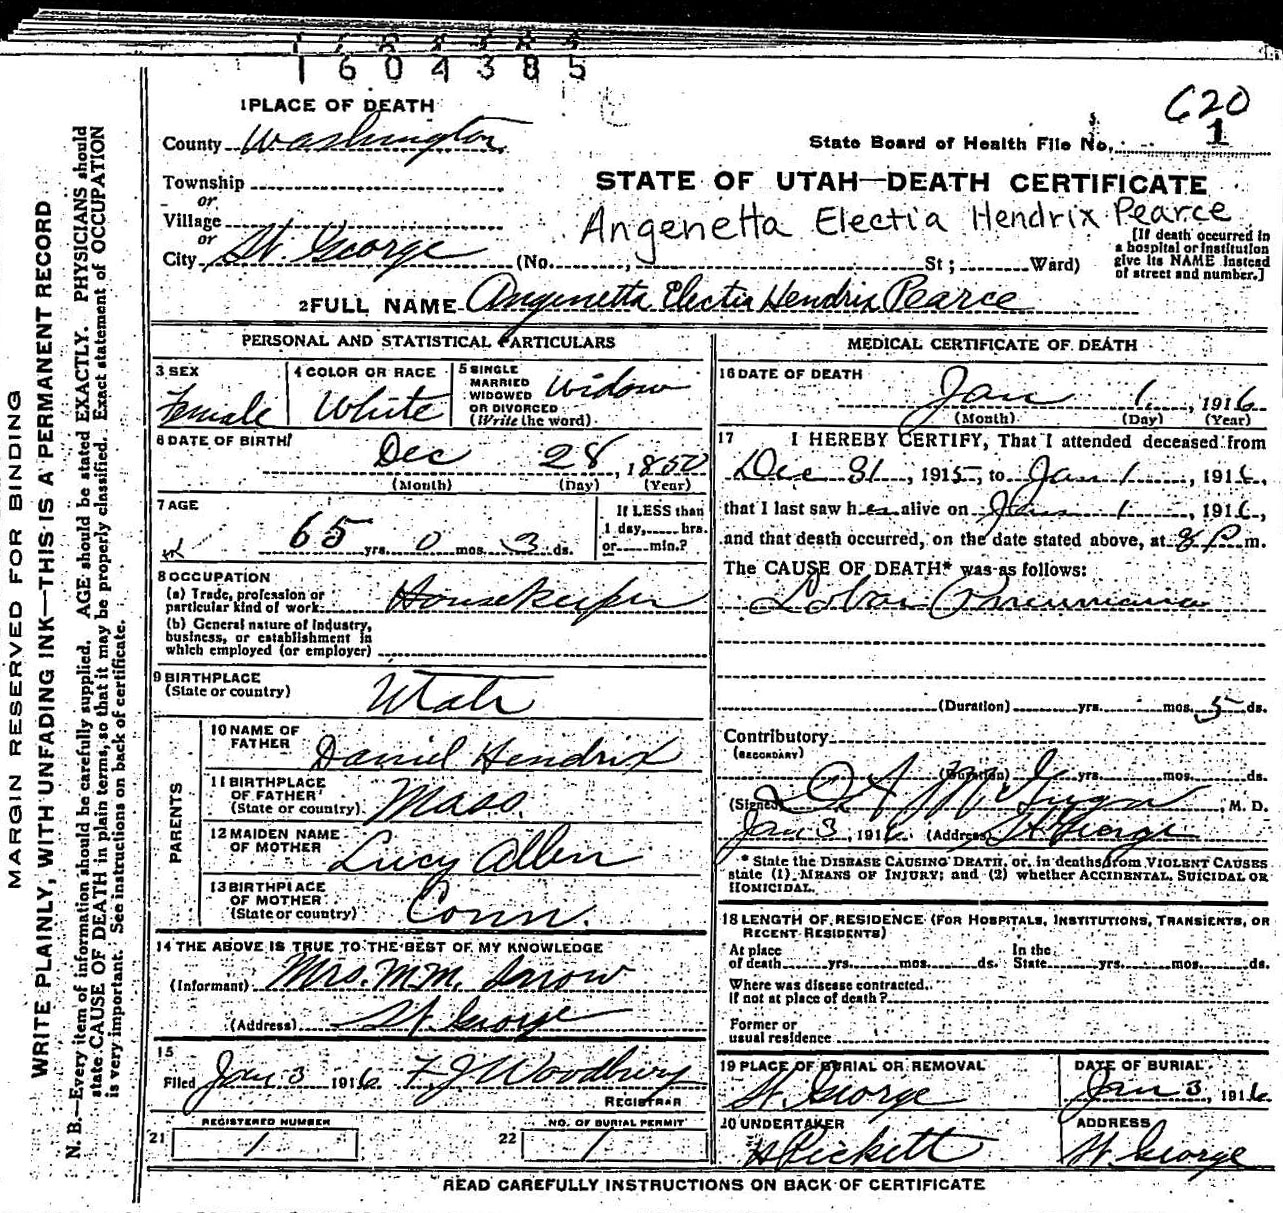 1604385
C20
1 PLACE OF DEATH
County Washington
State Board of Health File No. 1
Township
or
Village
or
City St. George (No. , St; Ward)
STATE OF UTAH—DEATH CERTIFICATE
Angenetta Electia Hendrix Pearce
[If death occurred in
a hospital or institution
give its NAME instead
of street and number.]
2 FULL NAME Angenetta Electia Hendrix Pearce
PERSONAL AND STATISTICAL PARTICULARS
3 SEX
Female
4 COLOR OR RACE
White
5 SINGLE
MARRIED
WIDOWED
OR DIVORCED
(Write the word)
Widow
6 DATE OF BIRTH
Dec 28, 1850
(Month) (Day) (Year)
7 AGE
65 yrs. 0 mos. 3 ds.
If LESS than
1 day, hrs.
or min.?
8 OCCUPATION
(a) Trade, profession or
particular kind of work Housekeeper
(b) General nature of industry,
business, or establishment in
which employed (or employer)
9 BIRTHPLACE
(State or country) Utah
PARENTS
10 NAME OF
FATHER Daniel Hendrix
11 BIRTHPLACE
OF FATHER
(State or country) Mass.
12 MAIDEN NAME
OF MOTHER Lucy Allen
13 BIRTHPLACE
OF MOTHER
(State or country) Conn.
14 THE ABOVE IS TRUE TO THE BEST OF MY KNOWLEDGE
(Informant) Mrs. M.M. Snow
(Address) St. George
15
Filed Jan 3 1916 F J Woodbury
REGISTRAR
REGISTERED NUMBER
21 1
NO. OF BURIAL PERMIT
22 1
MEDICAL CERTIFICATE OF DEATH
16 DATE OF DEATH
Jan 1, 1916
(Month) (Day) (Year)
17 I HEREBY CERTIFY, That I attended deceased from
Dec 31, 1915, to Jan 1, 1916,
that I last saw her alive on Jan 1, 1916,
and that death occurred, on the date stated above, at 8 P m.
The CAUSE OF DEATH* was as follows:
Lobar Pneumonia
(Duration) yrs. mos. 5 ds.
Contributory
(SECONDARY)
(Duration) yrs. mos. ds.
(Signed) , M. D.
Jan 3, 1916 (Address) St George
* State the DISEASE CAUSING DEATH, or, in deaths from VIOLENT CAUSES
state (1) MEANS OF INJURY; and (2) whether ACCIDENTAL, SUICIDAL OR
HOMICIDAL.
18 LENGTH OF RESIDENCE (FOR HOSPITALS, INSTITUTIONS, TRANSIENTS, OR
RECENT RESIDENTS)
At place In the
of death yrs. mos. ds. State yrs. mos. ds.
Where was disease contracted,
if not at place of death?
Former or
usual residence
19 PLACE OF BURIAL OR REMOVAL
St. George
DATE OF BURIAL
Jan 3, 1916
20 UNDERTAKER
Pickett
ADDRESS
St George
READ CAREFULLY INSTRUCTIONS ON BACK OF CERTIFICATE
MARGIN RESERVED FOR BINDING
WRITE PLAINLY, WITH UNFADING INK—THIS IS A PERMANENT RECORD
N. B.—Every item of information should be carefully supplied. AGE should be stated EXACTLY. PHYSICIANS should
state CAUSE OF DEATH in plain terms, so that it may be properly classified. Exact statement of OCCUPATION
is very important. See instructions on back of certificate.